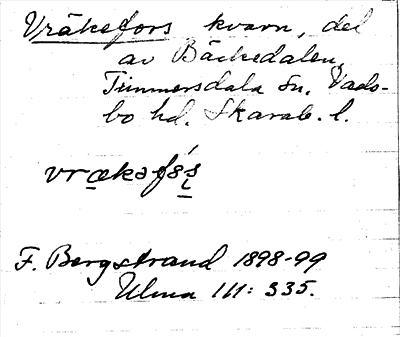 Vräkefors kvarn, del
av Bäckedalen,
Timmersdala sn, Vads-
bo hd. Skarab. l.
vrækəfós
F. Bergstrand 1898-99
Ulma 111: 335.